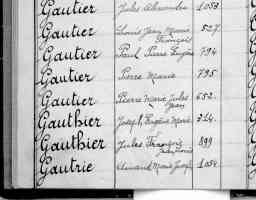 Gautier Jules Alexandre 1053
Gautier Louis Jean Marie François 527
Gautier Paul Pierre Eugène 794
Gautier Pierre Marie 795
Gautier Pierre Marie Jules Jean 652
Gauthier Joseph Eugène Marie 314
Gauthier Jules François 899
Gautrie Edmond Marie Joseph 1054